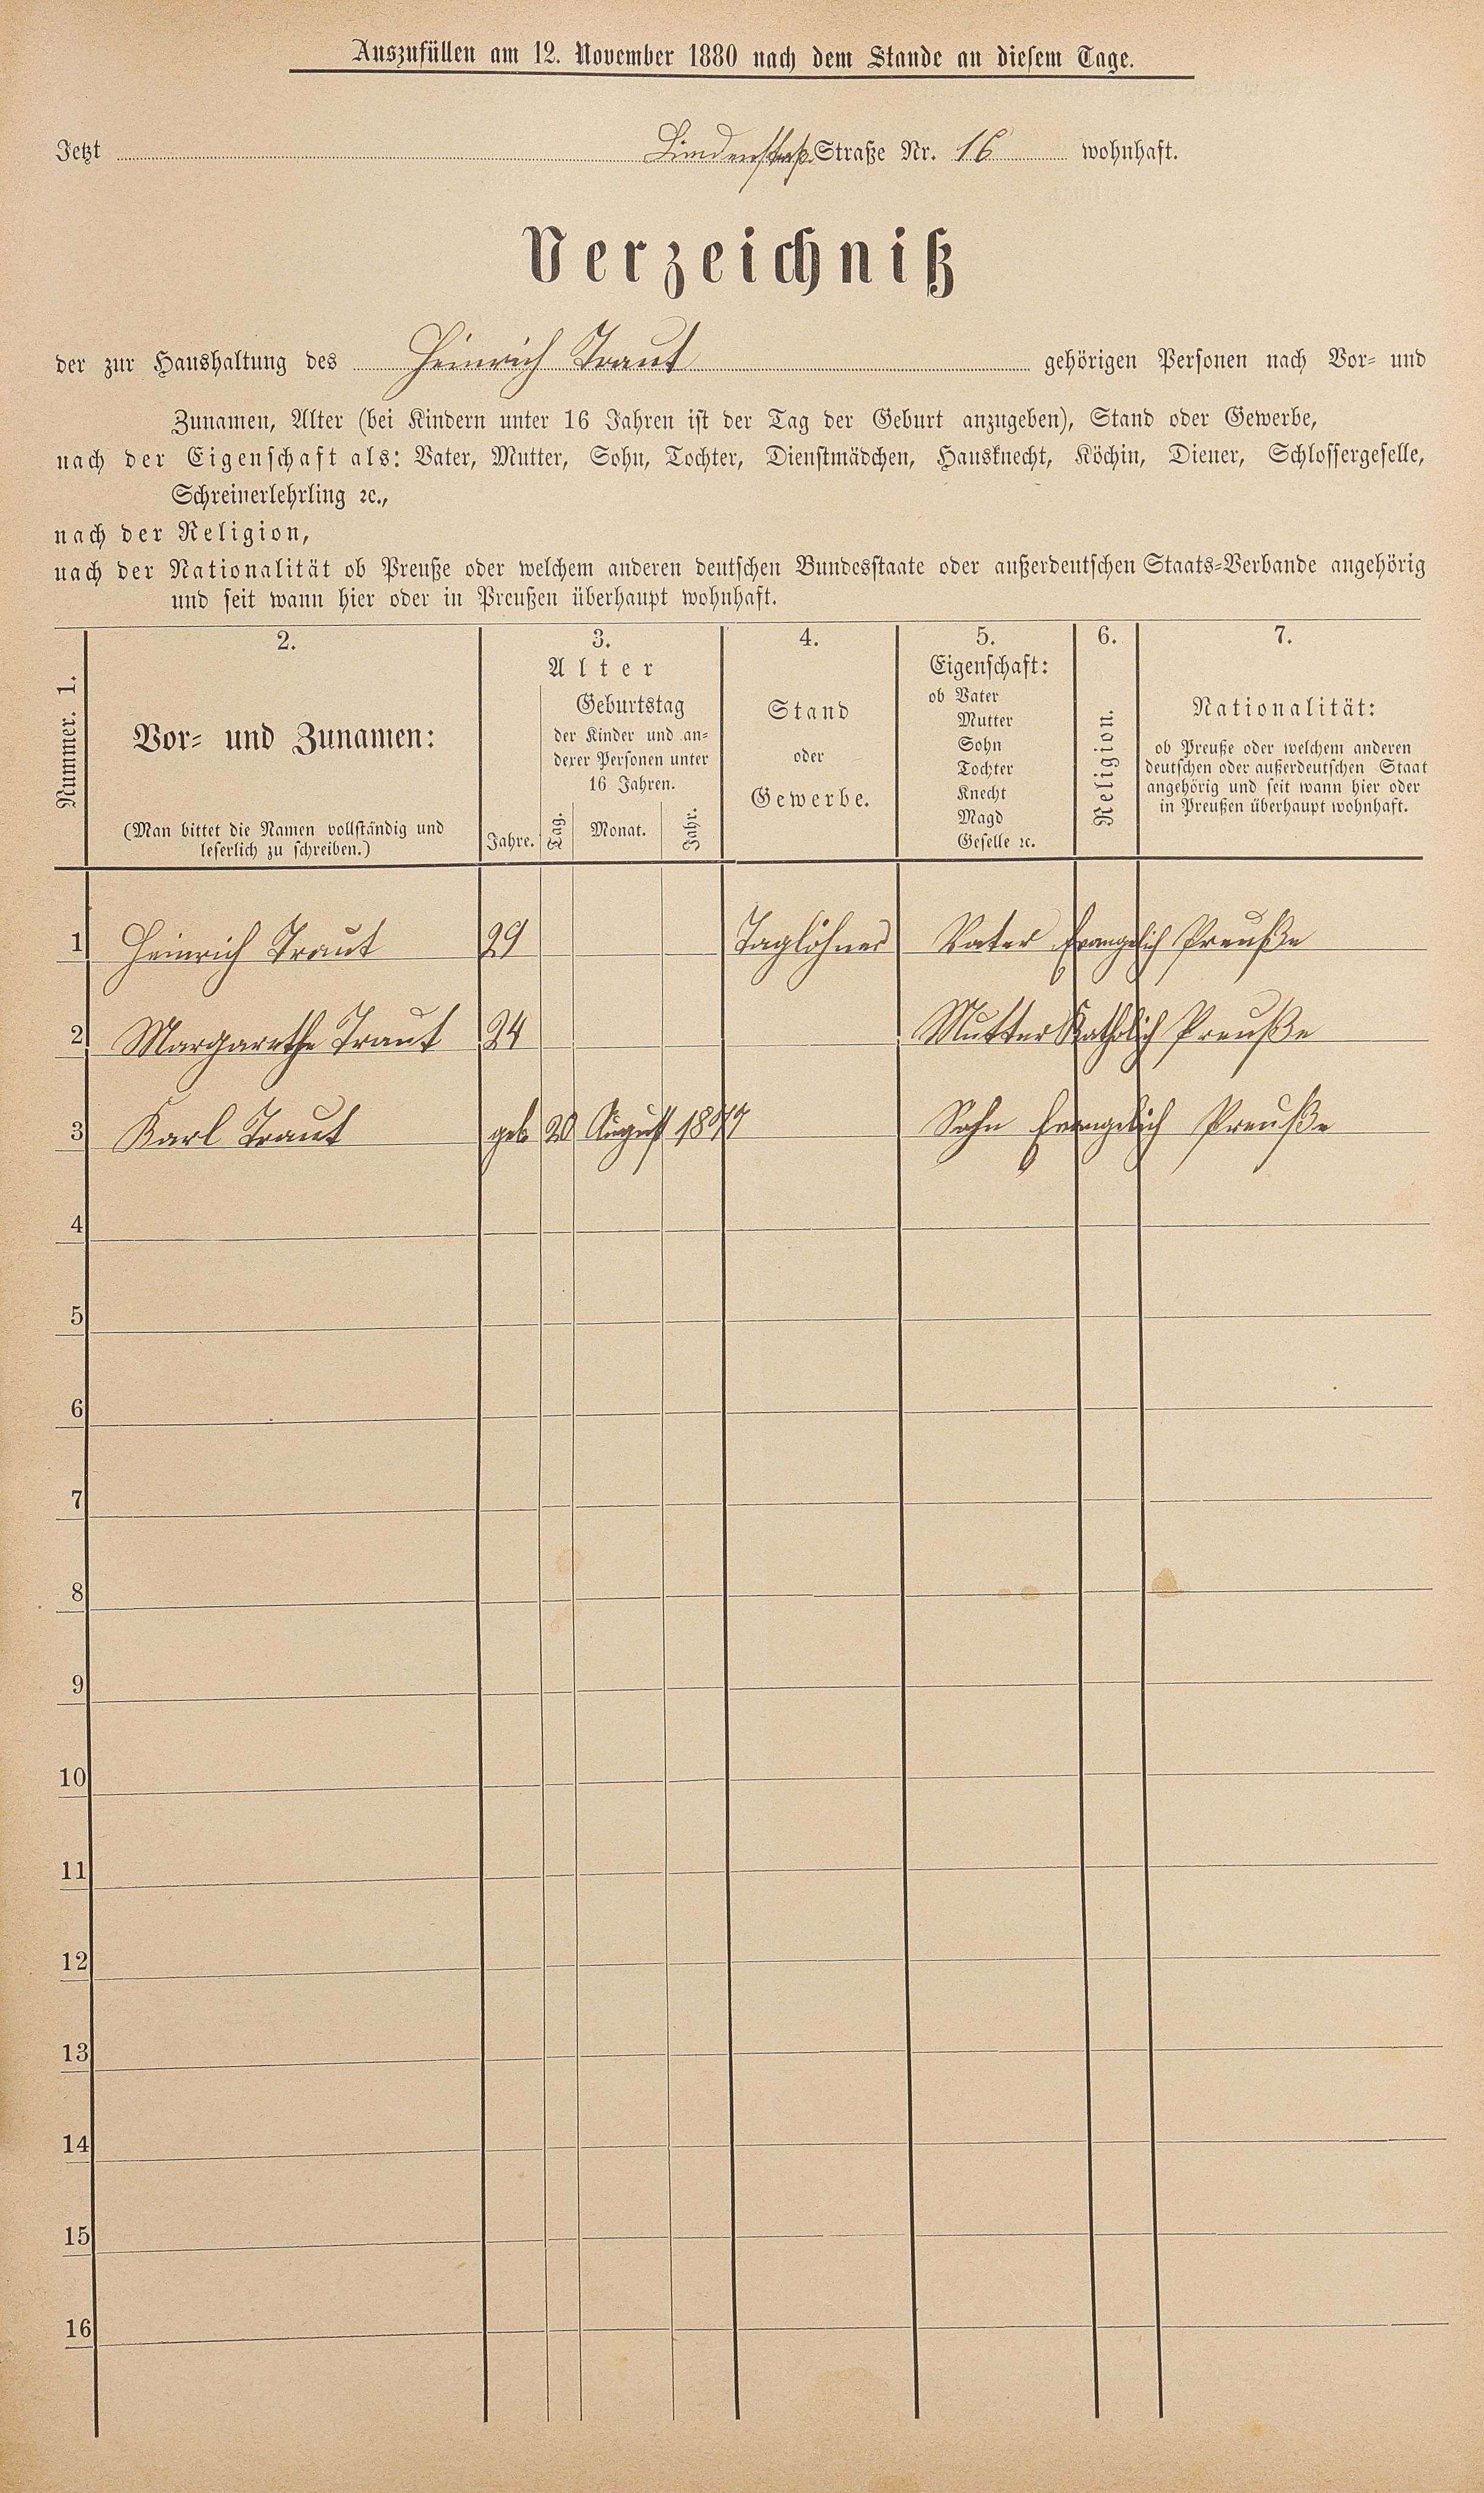 Auszufüllen am 12. November 1880 nach dem Stande an diesem Tage.
Jetzt Lindenstraß. Straße Nr. 16 wohnhaft.
Verzeichniß
der zur Haushaltung des Heinrich Traut gehörigen Personen nach Vor- und
Zunamen, Alter (bei Kindern unter 16 Jahren ist der Tag der Geburt anzugeben), Stand oder Gewerbe,
nach der Eigenschaft als: Vater, Mutter, Sohn, Tochter, Dienstmädchen, Hausknecht, Köchin, Diener, Schlossergeselle,
Schreinerlehrling ꝛc.,
nach der Religion,
nach der Nationalität ob Preuße oder welchem anderen deutschen Bundesstaate oder außerdeutschen Staats-Verbande angehörig
und seit wann hier oder in Preußen überhaupt wohnhaft.
Nummer. 1.
2.
Vor- und Zunamen:
(Man bittet die Namen vollständig und
leserlich zu schreiben.)
3.
Alter
Jahre.
Geburtstag
der Kinder und an-
derer Personen unter
16 Jahren.
Tag. Monat. Jahr.
4.
Stand
oder
Gewerbe.
5.
Eigenschaft:
ob Vater
Mutter
Sohn
Tochter
Knecht
Magd
Geselle ꝛc.
6.
Religion.
7.
Nationalität:
ob Preuße oder welchem anderen
deutschen oder außerdeutschen Staat
angehörig und seit wann hier oder
in Preußen überhaupt wohnhaft.
1 Heinrich Traut 29 Taglöhner Vater Evangelich Preuße
2 Margarethe Traut 24 Mutter Katholich Preuße
3 Karl Traut geb 20 August 1877 Sohn Evangelich Preuße
4
5
6
7
8
9
10
11
12
13
14
15
16